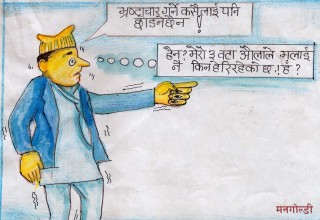 भ्रष्टाचार गर्ने कसैलाई पनि
छाड्ने छैन !
हैन? मेरो ३ वटा औंलाले मलाई
नै किन हेरिरहेको छ.! हँ ?
मनगोल्डी